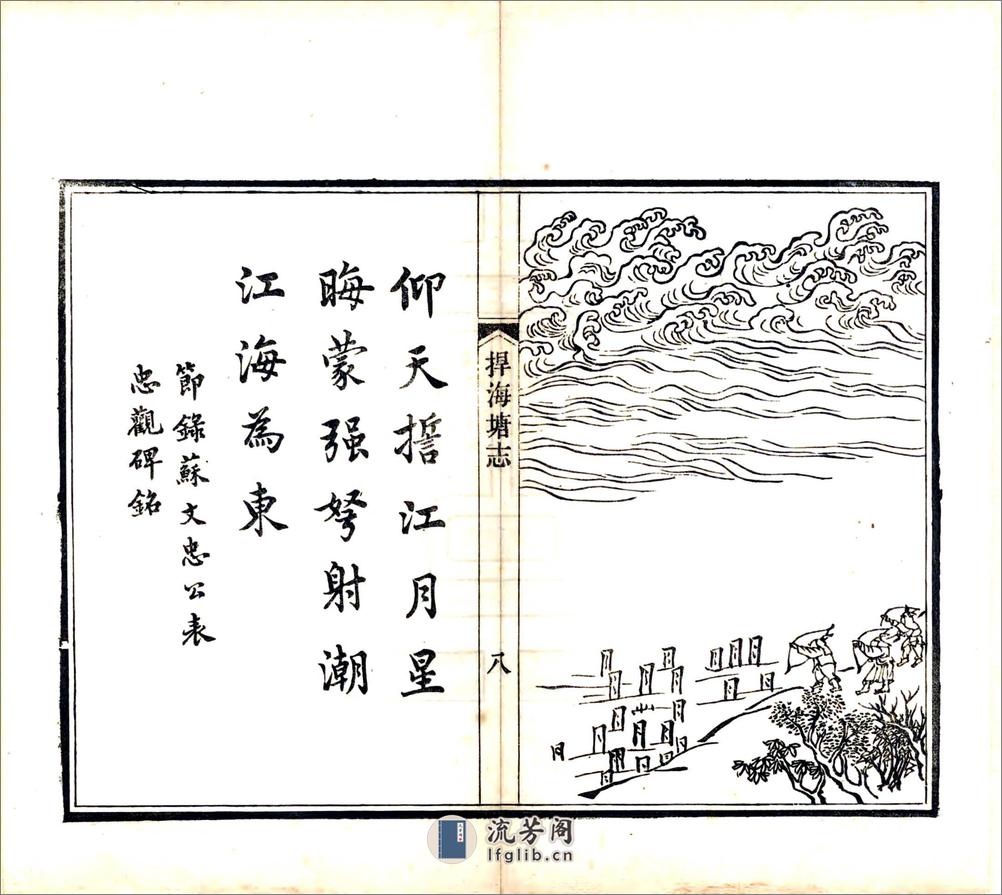 捍海塘志
八
仰天誓江月星
晦蒙强弩射潮
江海為東
節錄蘇文忠公表
忠觀碑銘
流芳阁
lfglib.cn